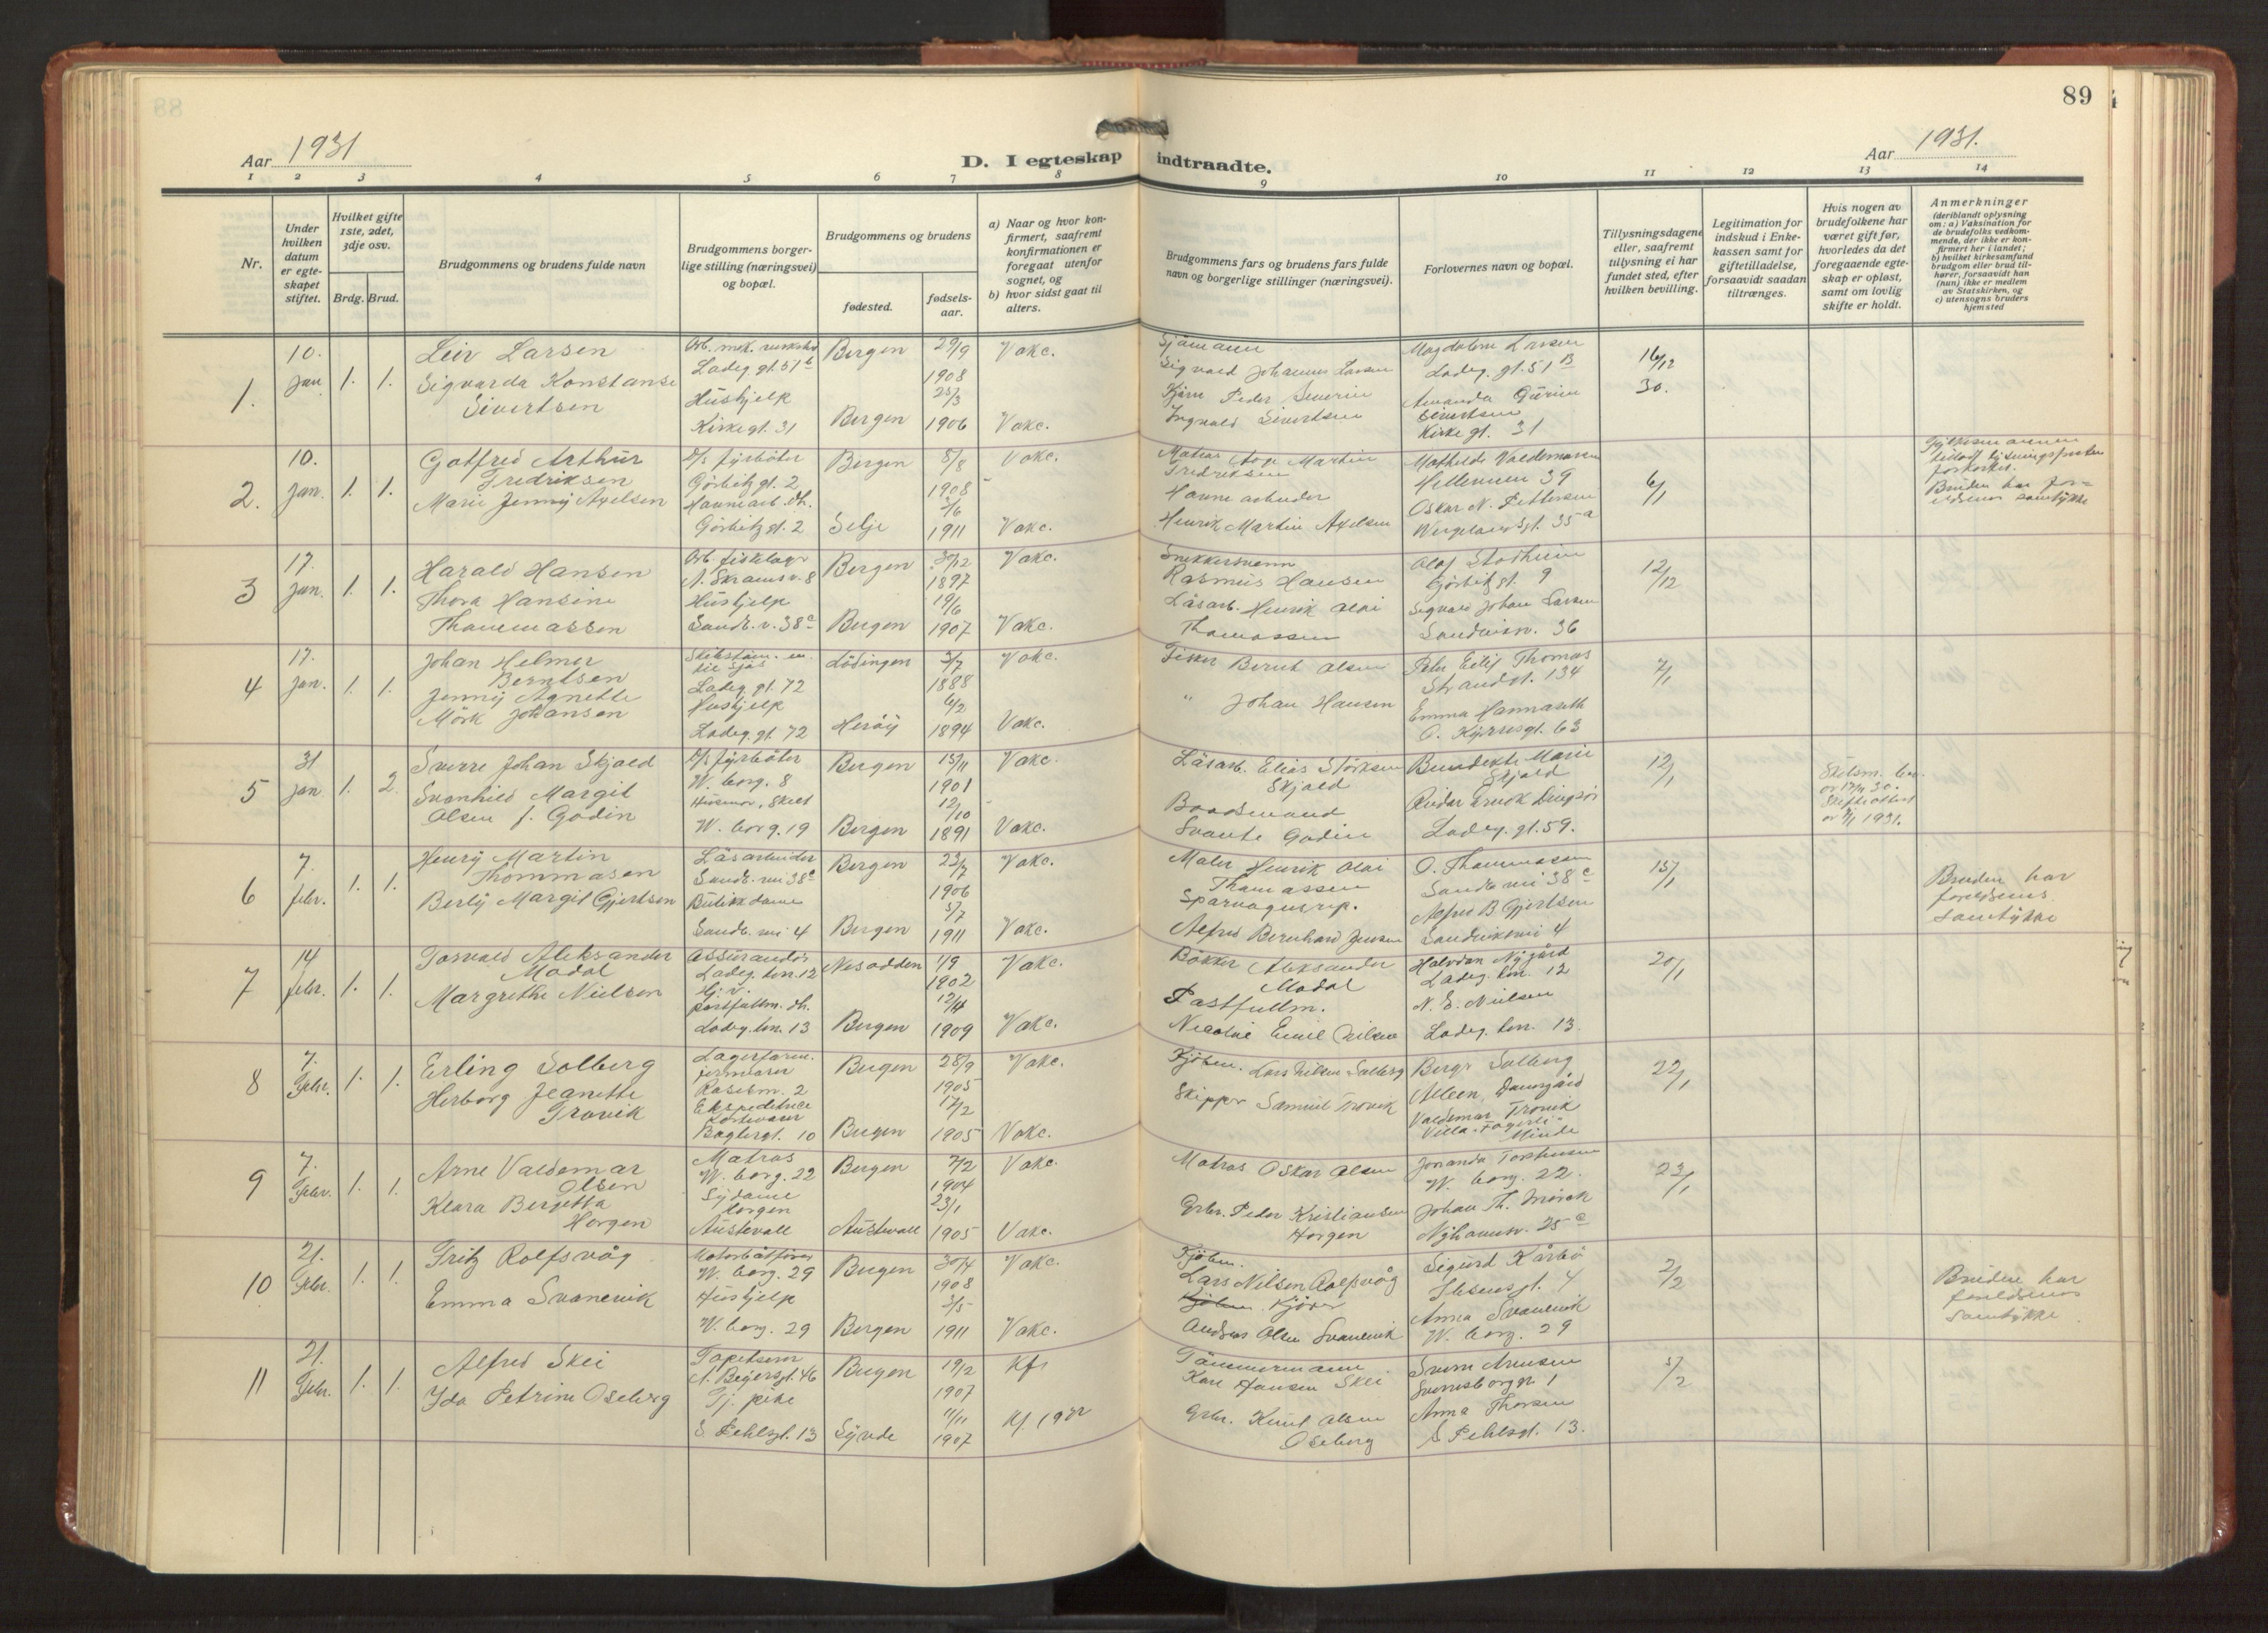 89
Aar 1931
D. I egteskap indtraadte.
Aar 1931.
1 2 3 4 5 6 7 8 9 10 11 12 13 14
Nr.
Under hvilken datum er egteskapet stiftet.
Hvilket gifte 1ste, 2det, 3dje osv.
Brdg. Brud.
Brudgommens og brudens fulde navn
Brudgommens borgerlige stilling (næringsvei) og bopæl.
Brudgommens og brudens
fødested.
fødselsaar.
a) Naar og hvor konfirmert, saafremt konfirmationen er foregaat utenfor sognet, og
b) hvor sidst gaat til alters.
Brudgommens fars og brudens fars fulde navn og borgerlige stillinger (næringsvei).
Forlovernes navn og bopæl.
Tillysningsdagene eller, saafremt tillysning ei har fundet sted, efter hvilken bevilling.
Legitimation for indskud i Enkekassen samt for giftetilladelse, forsaavidt saadan tiltrænges.
Hvis nogen av brudefolkene har været gift før, hvorledes da det foregaaende egteskap er opløst, samt om lovlig skifte er holdt.
Anmerkninger
(deriblandt oplysning om: a) Vaksination for de brudefolks vedkommende, der ikke er konfirmert her i landet; b) hvilket kirkesamfund brudgom eller brud tilhører, forsaavidt han (hun) ikke er medlem av Statskirken, og c) utensogns bruders hjemsted
1. 10. Jan 1. 1.
Leir Larsen
Sigvarda Konstanse
Sivertsen
Ladeg. gt. 51 b
Hushjelp
Kirkegt. 31
Bergen 29/9 1908 Vakc.
Bergen 1906 Vakc.
Sjömann
Sigvald Johannes Larsen
Peder Severin
Ingvald Sivertsen
Magdalene Larsen
Ladeg. gt. 51 B
Amanda
Sivertsen
Kirkegt. 31
16/12 30.
2. 10. Jan. 1. 1.
Gotfred Arthur
Fredriksen
Marie Jenny Axelsen
D/s fyrböter
Görbitzgt. 2
Havnearb. dh.
Görbitzgt. 2
Bergen 8/8 1908 Vakc.
Selje 1911 Vakc.
Matros Aage Martin
Fredriksen
Havnearbeider
Henrik Martin Axelsen
Mathilde Valdemarsen
Helleveien 39
Oskar N. Pettersen
Wergelandsgt. 35 a
6/1
Bruden har for-
eldrenes samtykke
3 17. Jan. 1. 1.
Harald Hansen
Thora Hansine
Thommassen
Arb. fiskelager
A. Skramsv. 8
Hushjelp
Sandv. v. 38 c
Bergen 30/12 1897 Vakc.
Bergen 19/6 1907 Vakc.
Snekkersvenn
Rasmus Hansen
Låsarb. Henrik Olai
Thomassen
Olaf Stadheim
Görbitzgt. 9
Sigvald Johan Larsen
Sandviksv. 36
12/12
4 17. Jan. 1. 1.
Johan Helmer
Berntsen
Jenny Agnette
Mörk Johansen
til sjös
Ladeg. gt. 72
Hushjelp
Ladeg. gt. 72
Lödingen 3/7 1888 Vakc.
Heröy 6/2 1894 Vakc.
Fisker Bernt Olsen
" Johan Hansen
Peter Eilif Thomas
Strandgt. 134
Emma Hannaseth
O. Kyrresgt. 63
7/1
5 31 Jan 1. 2.
Sverre Johan Skjold
Svanhild Margit
Olsen f. Godin
D/s fyrböter
W. borg. 8
Husmor, Skilt
W. borg. 19
Bergen 13/11 1901 Vakc.
Bergen 12/10 1891 Vakc.
Låsarb. Elias Störksen
Skjold
Baadsmand
Svante Godin
Benedikte Marie
Skjold
Ladeg. gt. 59.
12/1
6 7. febr. 1. 1.
Henry Martin
Thommasen
Berly Margit Gjertsen
Låsarbeider
Sandv. vei 38 c
Butikkdame
Sandv. vei 4
Bergen 23/7 1906 Vakc.
Bergen 5/7 1911 Vakc.
Maler Henrik Olai
Thomassen
Sparvognsrep.
Alfred Bernhard Jensen
O. Thommassen
Sandv. vei 38 c
Alfred B Gjertsen
Sandviksvei 4
15/1
Bruden har
foreldrenes
samtykke
7 14 febr. 1. 1.
Torvald Aleksander
Modal
Margrethe Nielsen
Assurandör
Ladeg. ten. 12
Hj. v.
postfullm. dh.
Ladeg. ten. 13
Nesodden 1/9 1902 Vakc.
Bergen 12/4 1909 Vakc.
Bökker Aleksander
Modal
Postfullm.
Nicolai Emil Nilsen
Halvdan Nygård
Ladeg. ten. 12
N. E. Nielsen
Ladeg. ten. 13.
20/1
8 7. Febr. 1. 1.
Erling Solberg
Herborg Jeanette
Trovik
Rosesm. 2
Ekspeditrice
Bagbergt. 10
Bergen 28/9 1905 Vakc.
Bergen 17/2 1905 Vakc.
Kjöbm. Lars Nilsen Solberg
Skipper Samuel Trovik
Solberg
Alleen, Damsgård
Valdemar Trovik
Villa Fagerli
Minde
22/1
9 7. Febr. 1. 1.
Arne Valdemar
Olsen
Klara Bergitta
Horgen
Matros
W. borg. 22
Sydame
Horgen
Austevoll
Bergen 7/2 1904 Vakc.
Austevoll 23/1 1905 Vakc.
Matros Oskar Olsen
Grbr. Peder Kristiansen
Horgen
W. borg. 22.
Johan Th. Mörch
Nyhavnsv. 25 c
23/1
10 21. Febr. 1. 1.
Fritz Rolfsvåg
Emma Svanevik
Motorbåtförer
W. borg. 29
Hushjelp
W. borg. 29
Bergen 30/4 1908 Vakc.
Bergen 3/5 1911 Vakc.
Kjöbm.
Lars Nilsen Rolfsvåg
Andreas Olsen Svanevik
Sigurd Kårbö
Ibsensgt. 4
Anna Svanevik
W. borg. 29
2/2
Bruden har
foreldrenes
samtykke
11 21. Febr. 1. 1.
Alfred Skei
Ida Petrine Oseberg
Tapetserer
A. Beyersgt. 46
Tj. pike
S. Pihlsgt. 13
Bergen 19/2 1907 Kfr
Syvde 11/11 1907
Tömmermann
Karl Hansen Skei
Grbr. Knut Olsen
Oseberg
Sverresborggt. 1
Anna Thorsen
S. Pihlsgt. 13.
5/2